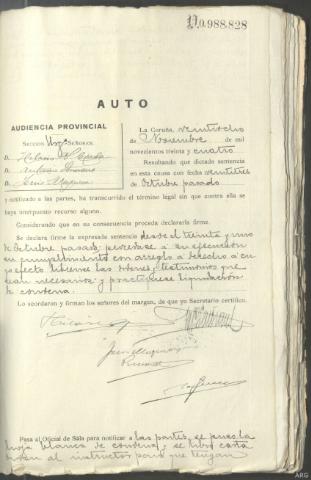 0.988.828
AUTO
AUDIENCIA PROVINCIAL
SECCIÓN SEÑORES
D.
D.
D. Jesús
La Coruña, veintiocho
de Noviembre de mil
novecientos treinta y cuatro
Resultando que dictada sentencia
en esta causa con fecha veintitres
de Octubre pasado
y notificada a las partes, ha transcurrido el término legal sin que contra ella se
haya interpuesto recurso alguno.
Considerando que en su consecuencia procede declararla firme.
Se declara firme la expresada sentencia desde el treinta y uno
de Octubre pasado, procédase a su ejecución
en cumplimiento con arreglo a derecho a cu-
yo efecto líbrense las órdenes y testimonios que
sean necesarios y practíquese liquidación
de condena.
Lo acordaron y firman los señores del margen, de que yo Secretario certifico.
Pasa al Oficial de Sala para notificar a las partes, se puso la
hoja blanca de condena, se libró carta
orden al instructor para que tengan
ARG